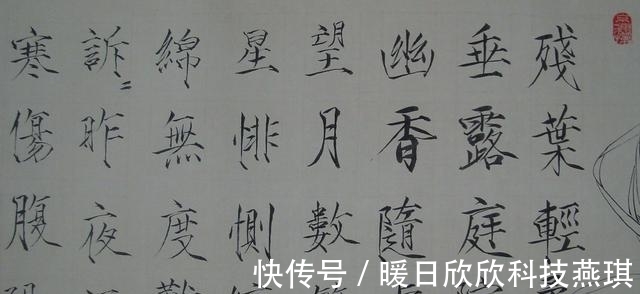 殘葉輕
垂露庭
幽香隨
望月數
星悱惻
綿無度
訴〻昨夜
寒傷腹
快传号 / 暖日欣欣科技燕琪